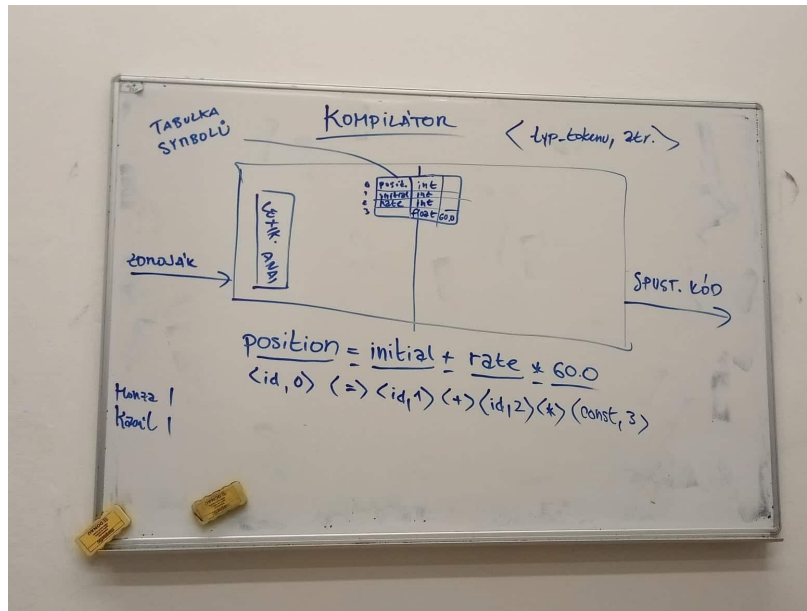 TABULKA
SYMBOLŮ
KOMPILÁTOR
< typ_tokenu, atr. >
0 posit. int
1 initial int
2 rate int
3 float 60.0
LEXIK. ANAL
ZDROJÁK
SPUST. KÓD
position = initial + rate * 60.0
<id, 0> <=> <id, 1> <+> <id, 2> <*> <const, 3>
Honza |
Kamil |